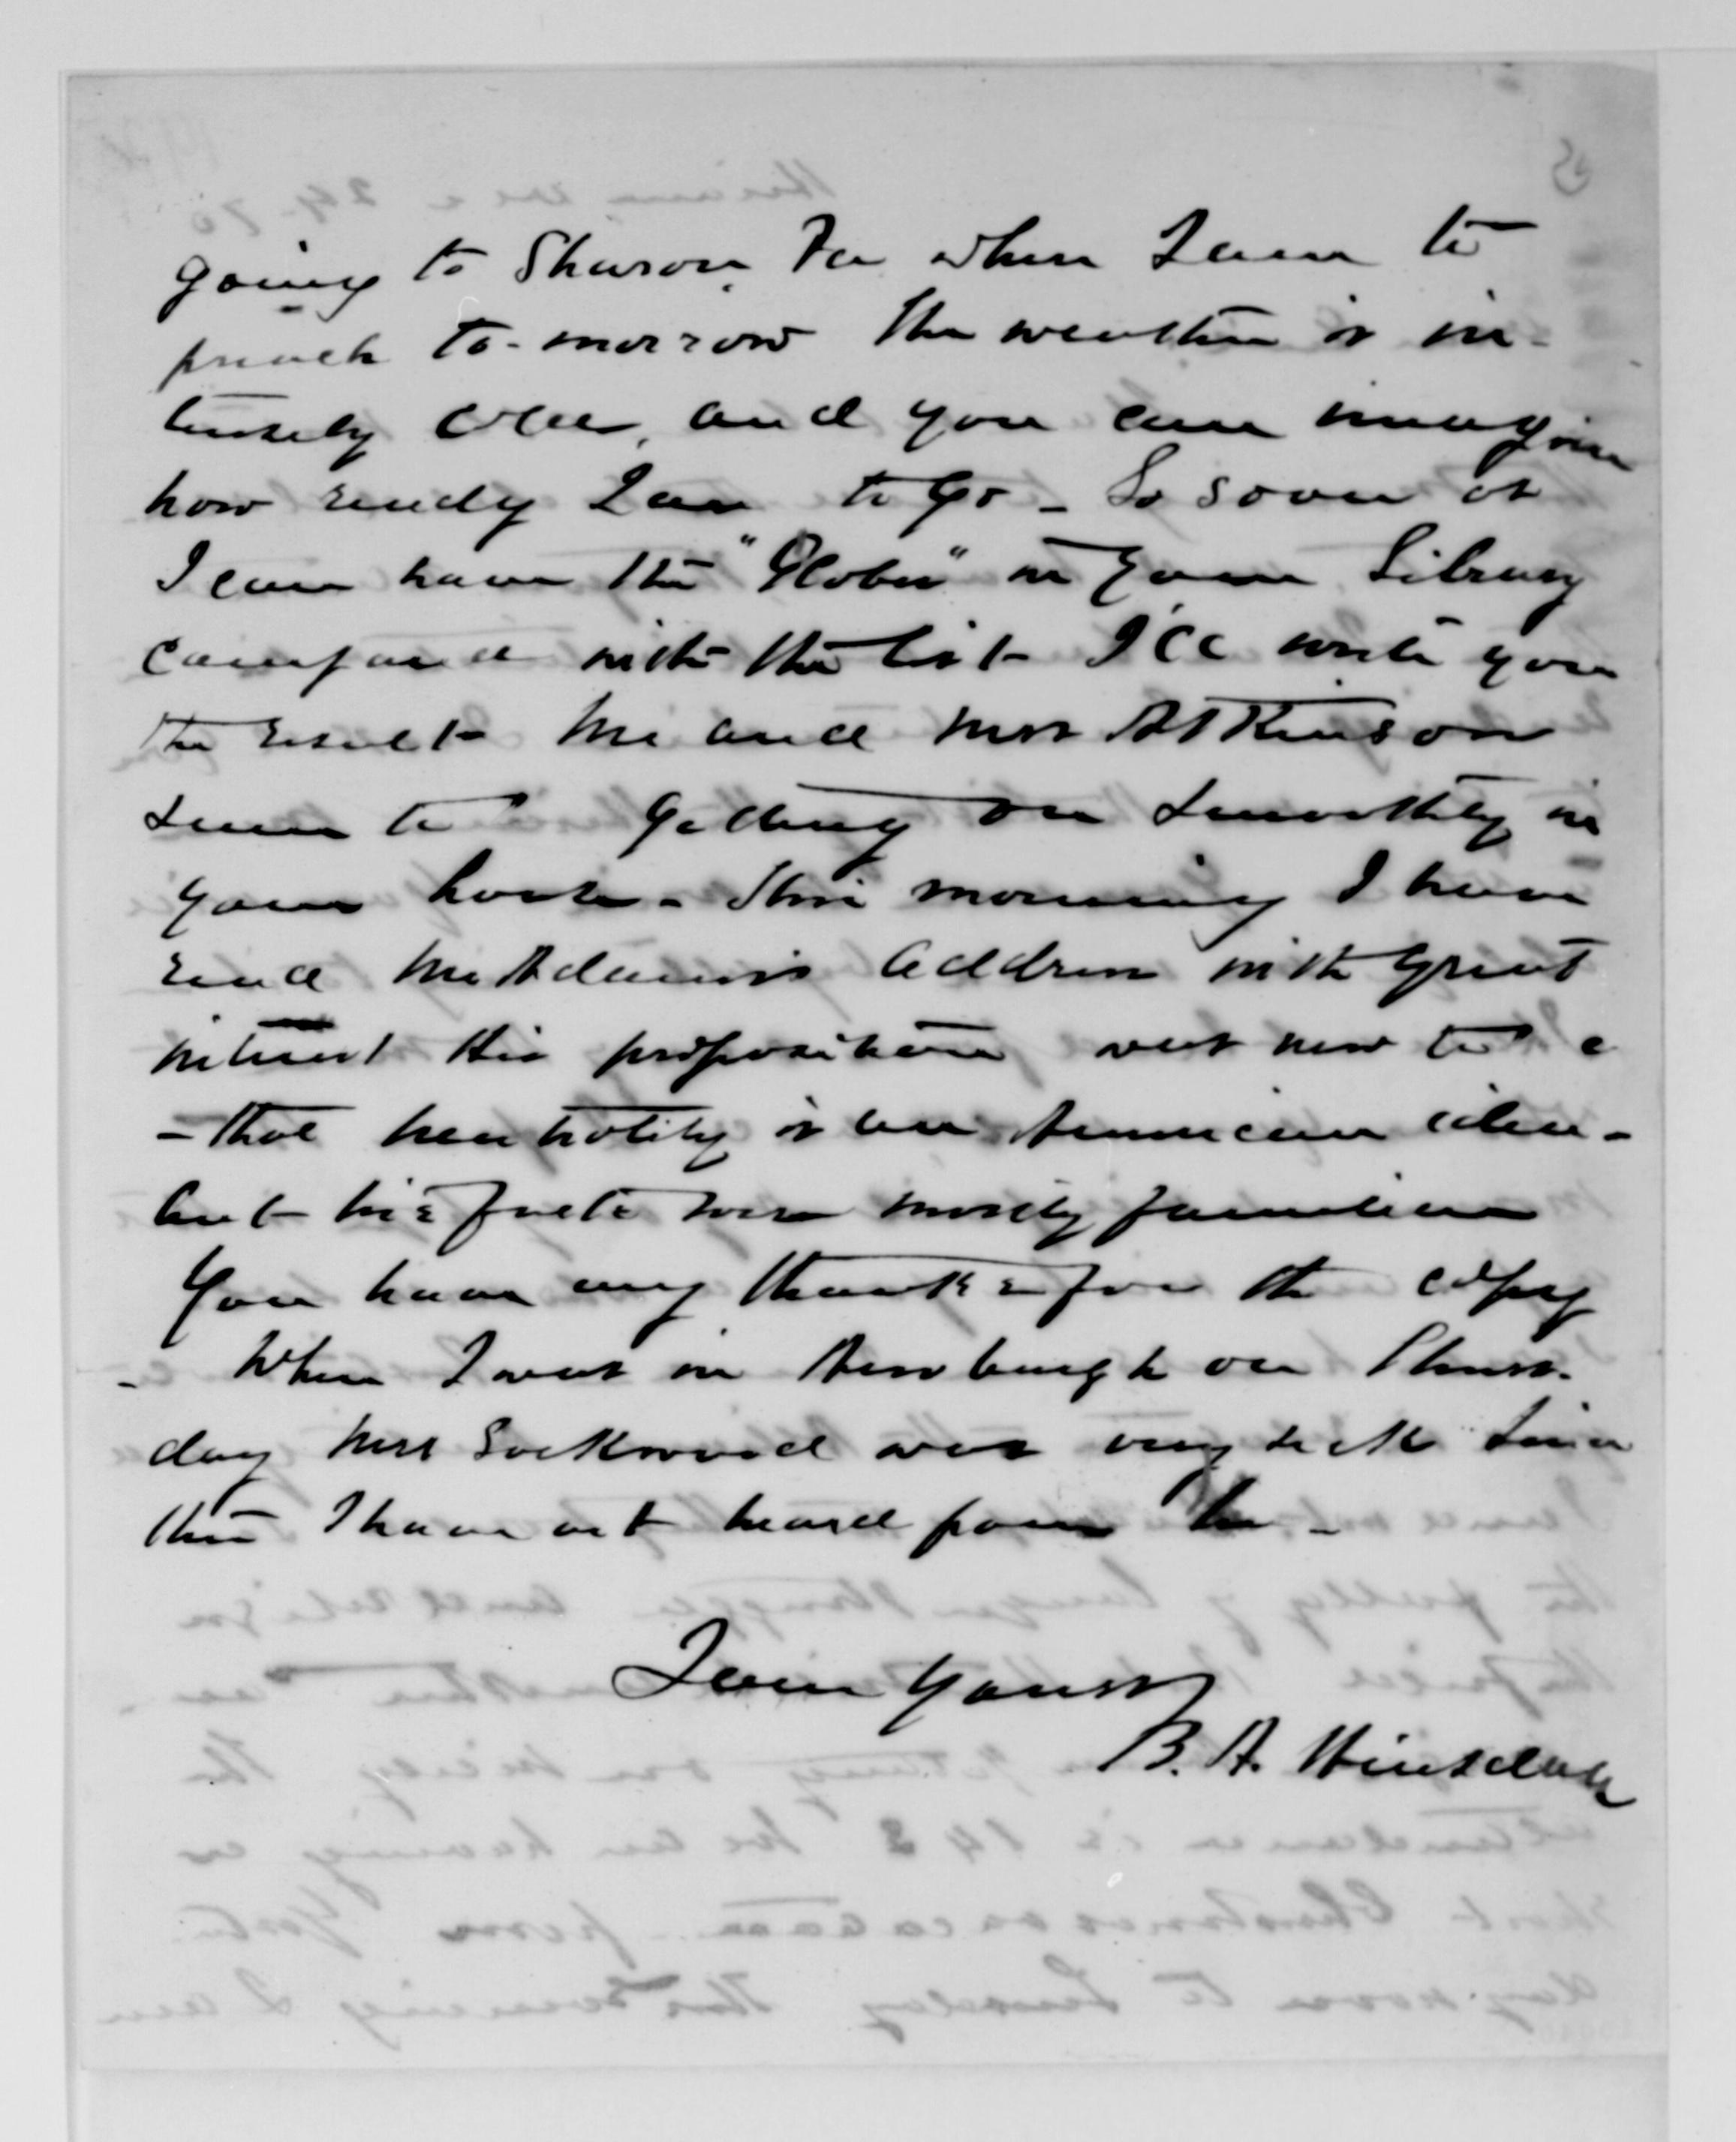 going to Sharon, Pa where I am to
preach to-morrow The weather is in-
tensely cold, and you can imagine
how ready I am to go - So soon as
I can have the "Globes" in your Library
compared with the list I'll write you
the result Mr and Mrs Atkinson
seem to getting on smoothly in
your house - This morning I have
read Mr Adams's address with great
interest His proposition was new to
- that neutrality is an American idea -
but his facts were mostly familiar
You have my thanks for the copy
- When I was in Newburgh on Thurs-
day Mrs Lockwood was very sick Since
then I have not heard from her -
I am yours
B. A. Hinsdale